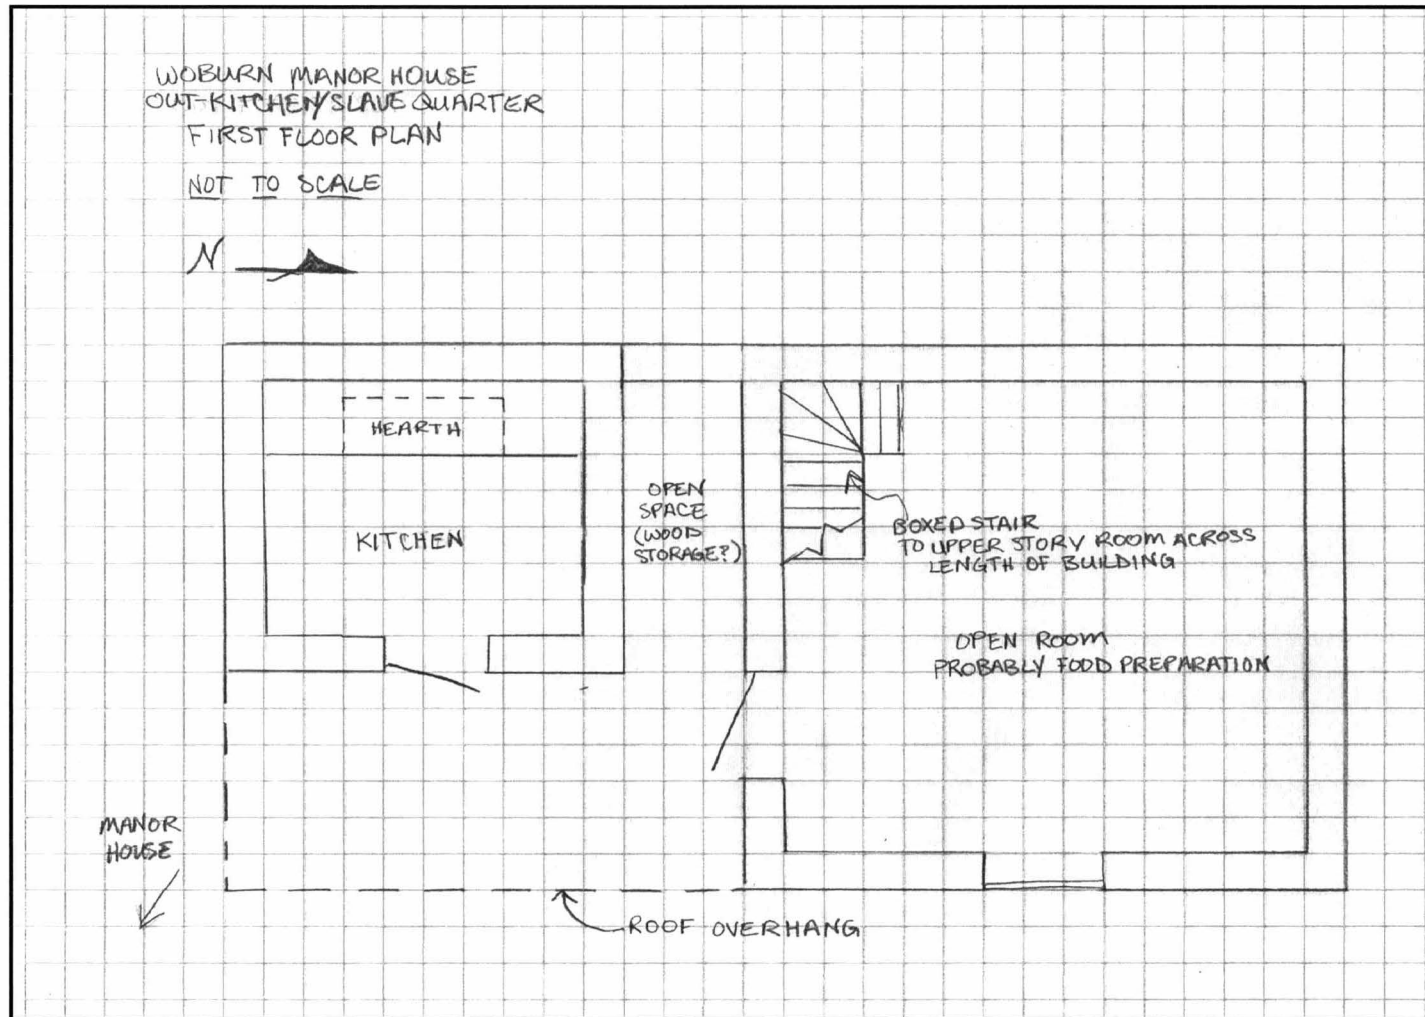 WOBURN MANOR HOUSE
OUT-KITCHEN/SLAVE QUARTER
FIRST FLOOR PLAN
NOT TO SCALE
N
HEARTH
KITCHEN
OPEN
SPACE
(WOOD
STORAGE?)
BOXED STAIR
TO UPPER STORY ROOM ACROSS
LENGTH OF BUILDING
OPEN ROOM
PROBABLY FOOD PREPARATION
MANOR
HOUSE
ROOF OVERHANG